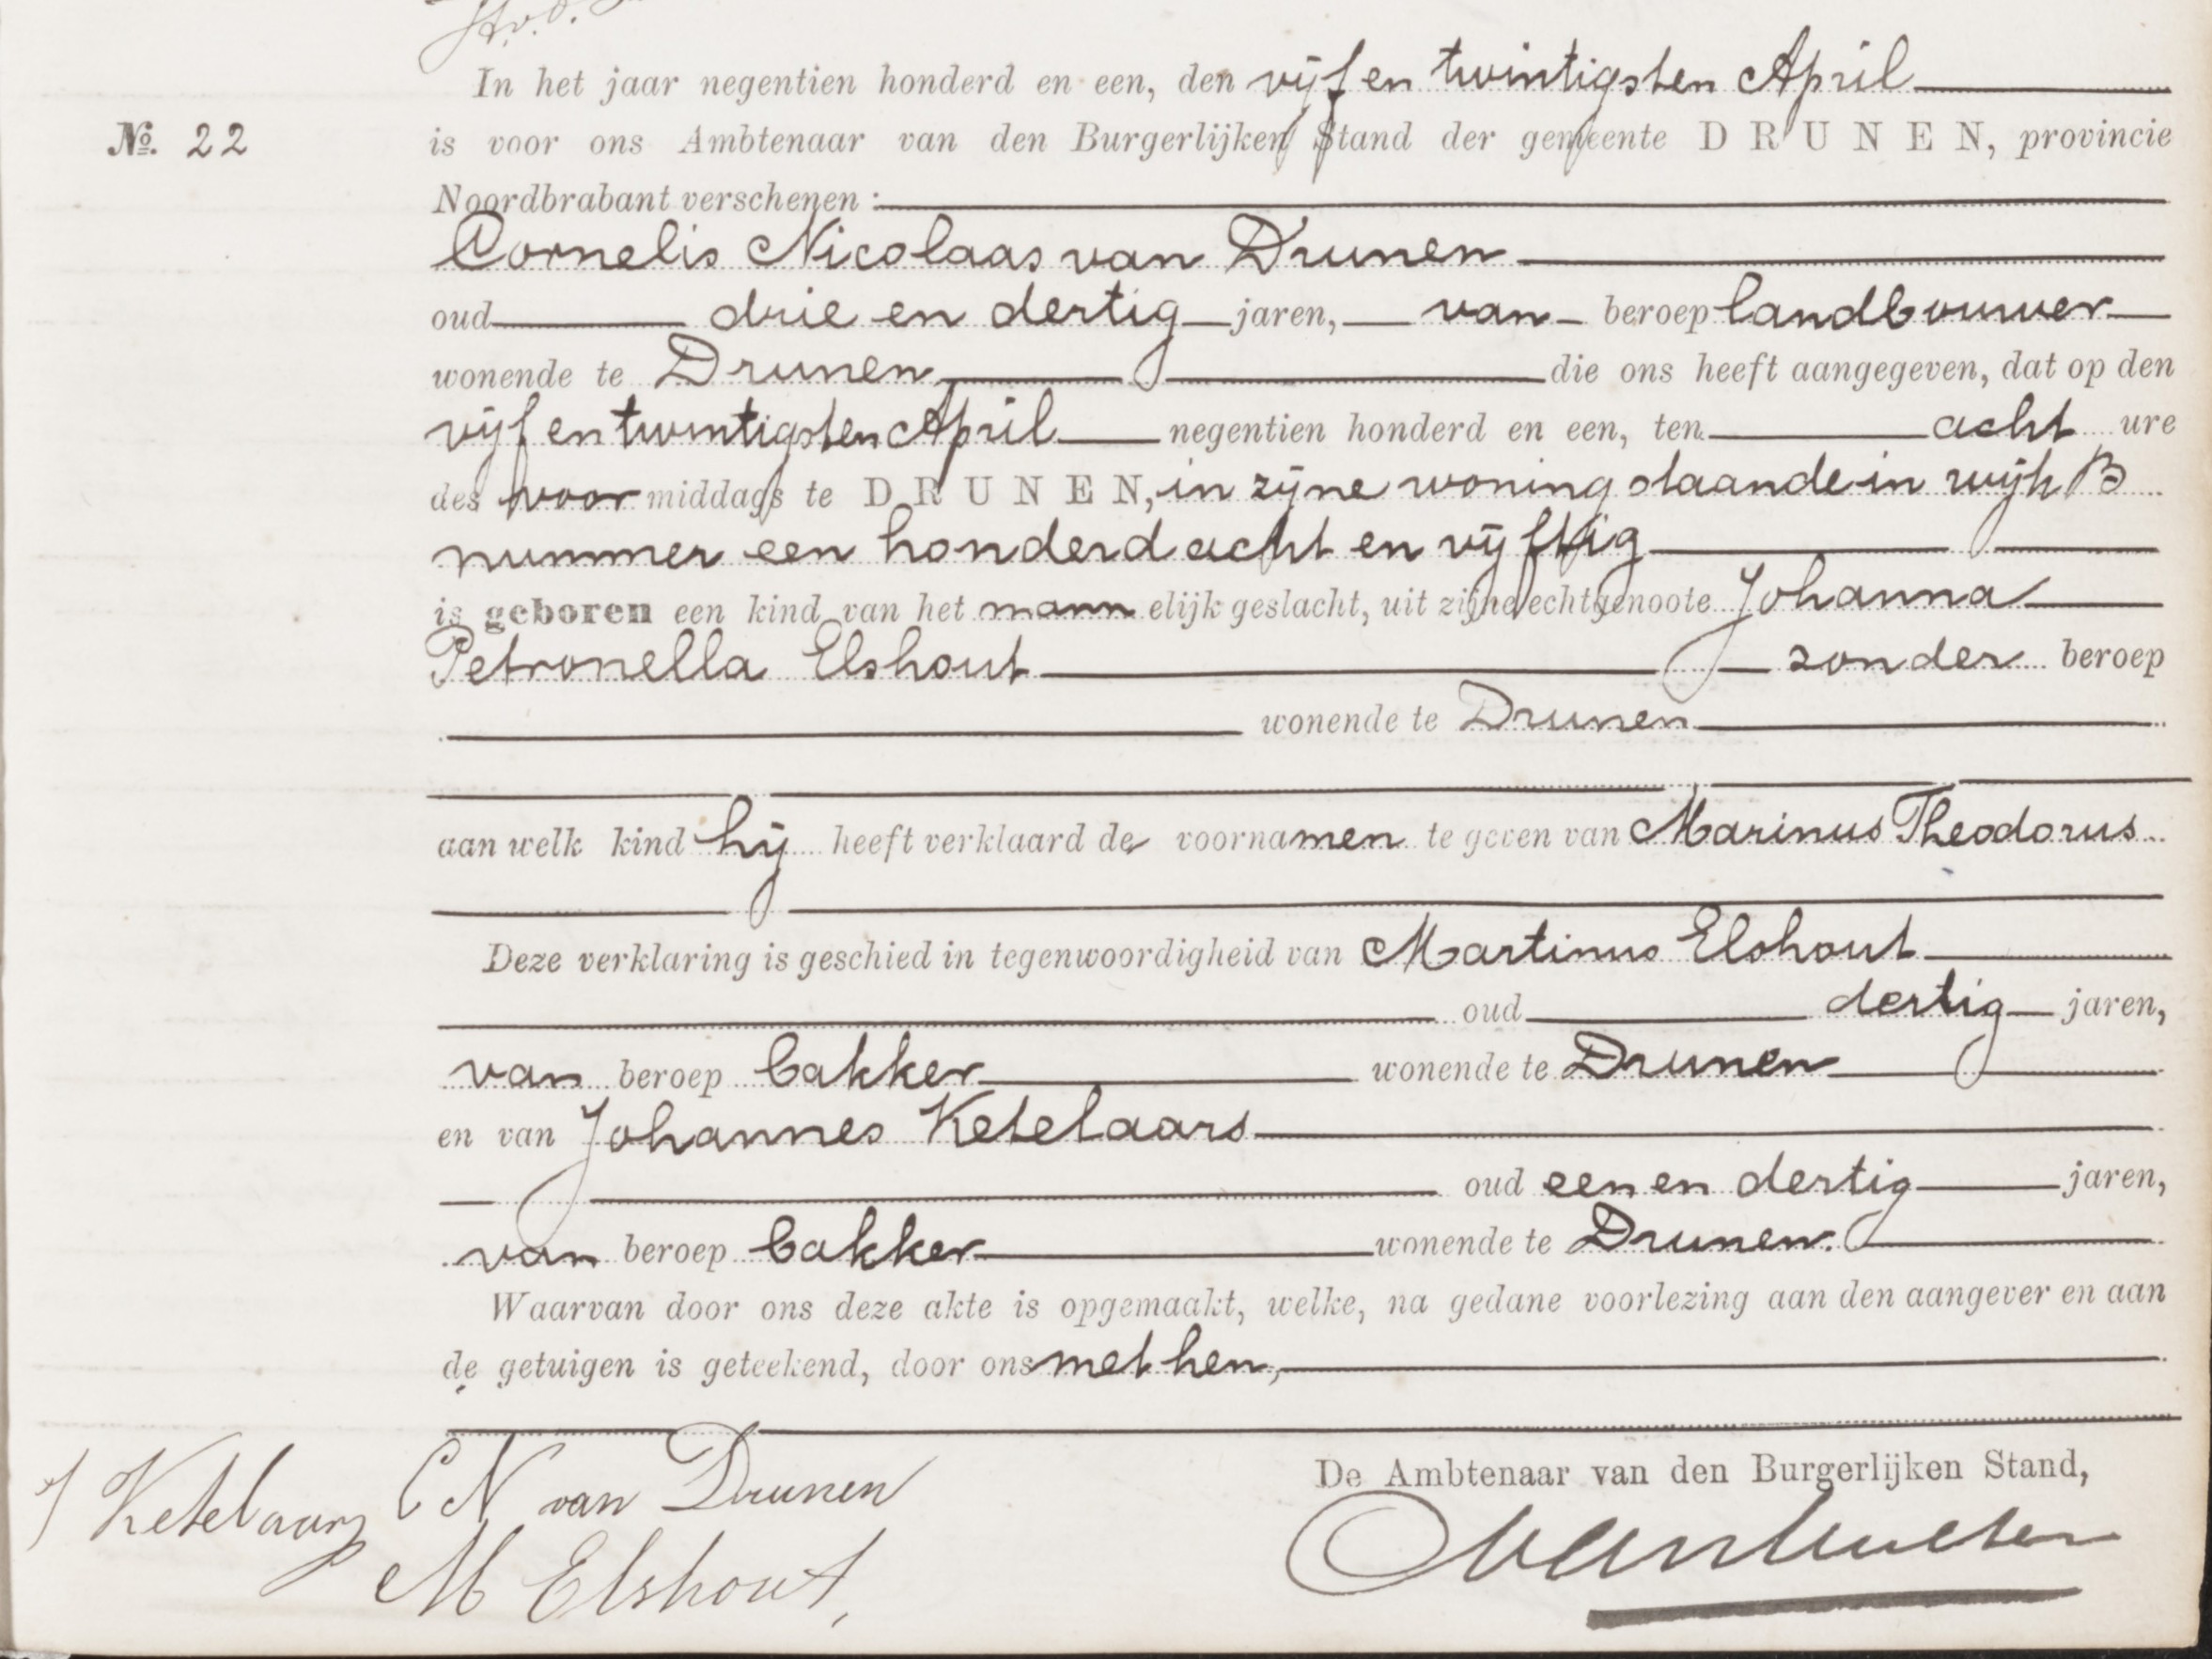 In het jaar negentien honderd en een, den vijf en twintigsten April
No. 22
is voor ons Ambtenaar van den Burgerlijken Stand der gemeente DRUNEN, provincie
Noordbrabant verschenen:
Cornelis Nicolaas van Drunen
oud drie en dertig jaren, van beroep landbouwer
wonende te Drunen die ons heeft aangegeven, dat op den
vijf en twintigsten April negentien honderd en een, ten acht ure
des voormiddags te DRUNEN, in zijne woning staande in wijk B
nummer een honderd acht en vijftig
is geboren een kind van het mannelijk geslacht, uit zijne echtgenoote Johanna
Petronella Elshout zonder beroep
wonende te Drunen
aan welk kind hij heeft verklaard de voornamen te geven van Marinus Theodorus
Deze verklaring is geschied in tegenwoordigheid van Martinus Elshout
oud dertig jaren,
van beroep bakker wonende te Drunen
en van Johannes Ketelaars
oud een en dertig jaren,
van beroep bakker wonende te Drunen.
Waarvan door ons deze akte is opgemaakt, welke, na gedane voorlezing aan den aangever en aan
de getuigen is geteekend, door ons met hen,
De Ambtenaar van den Burgerlijken Stand,
J Ketelaars C N van Drunen
M Elshout,